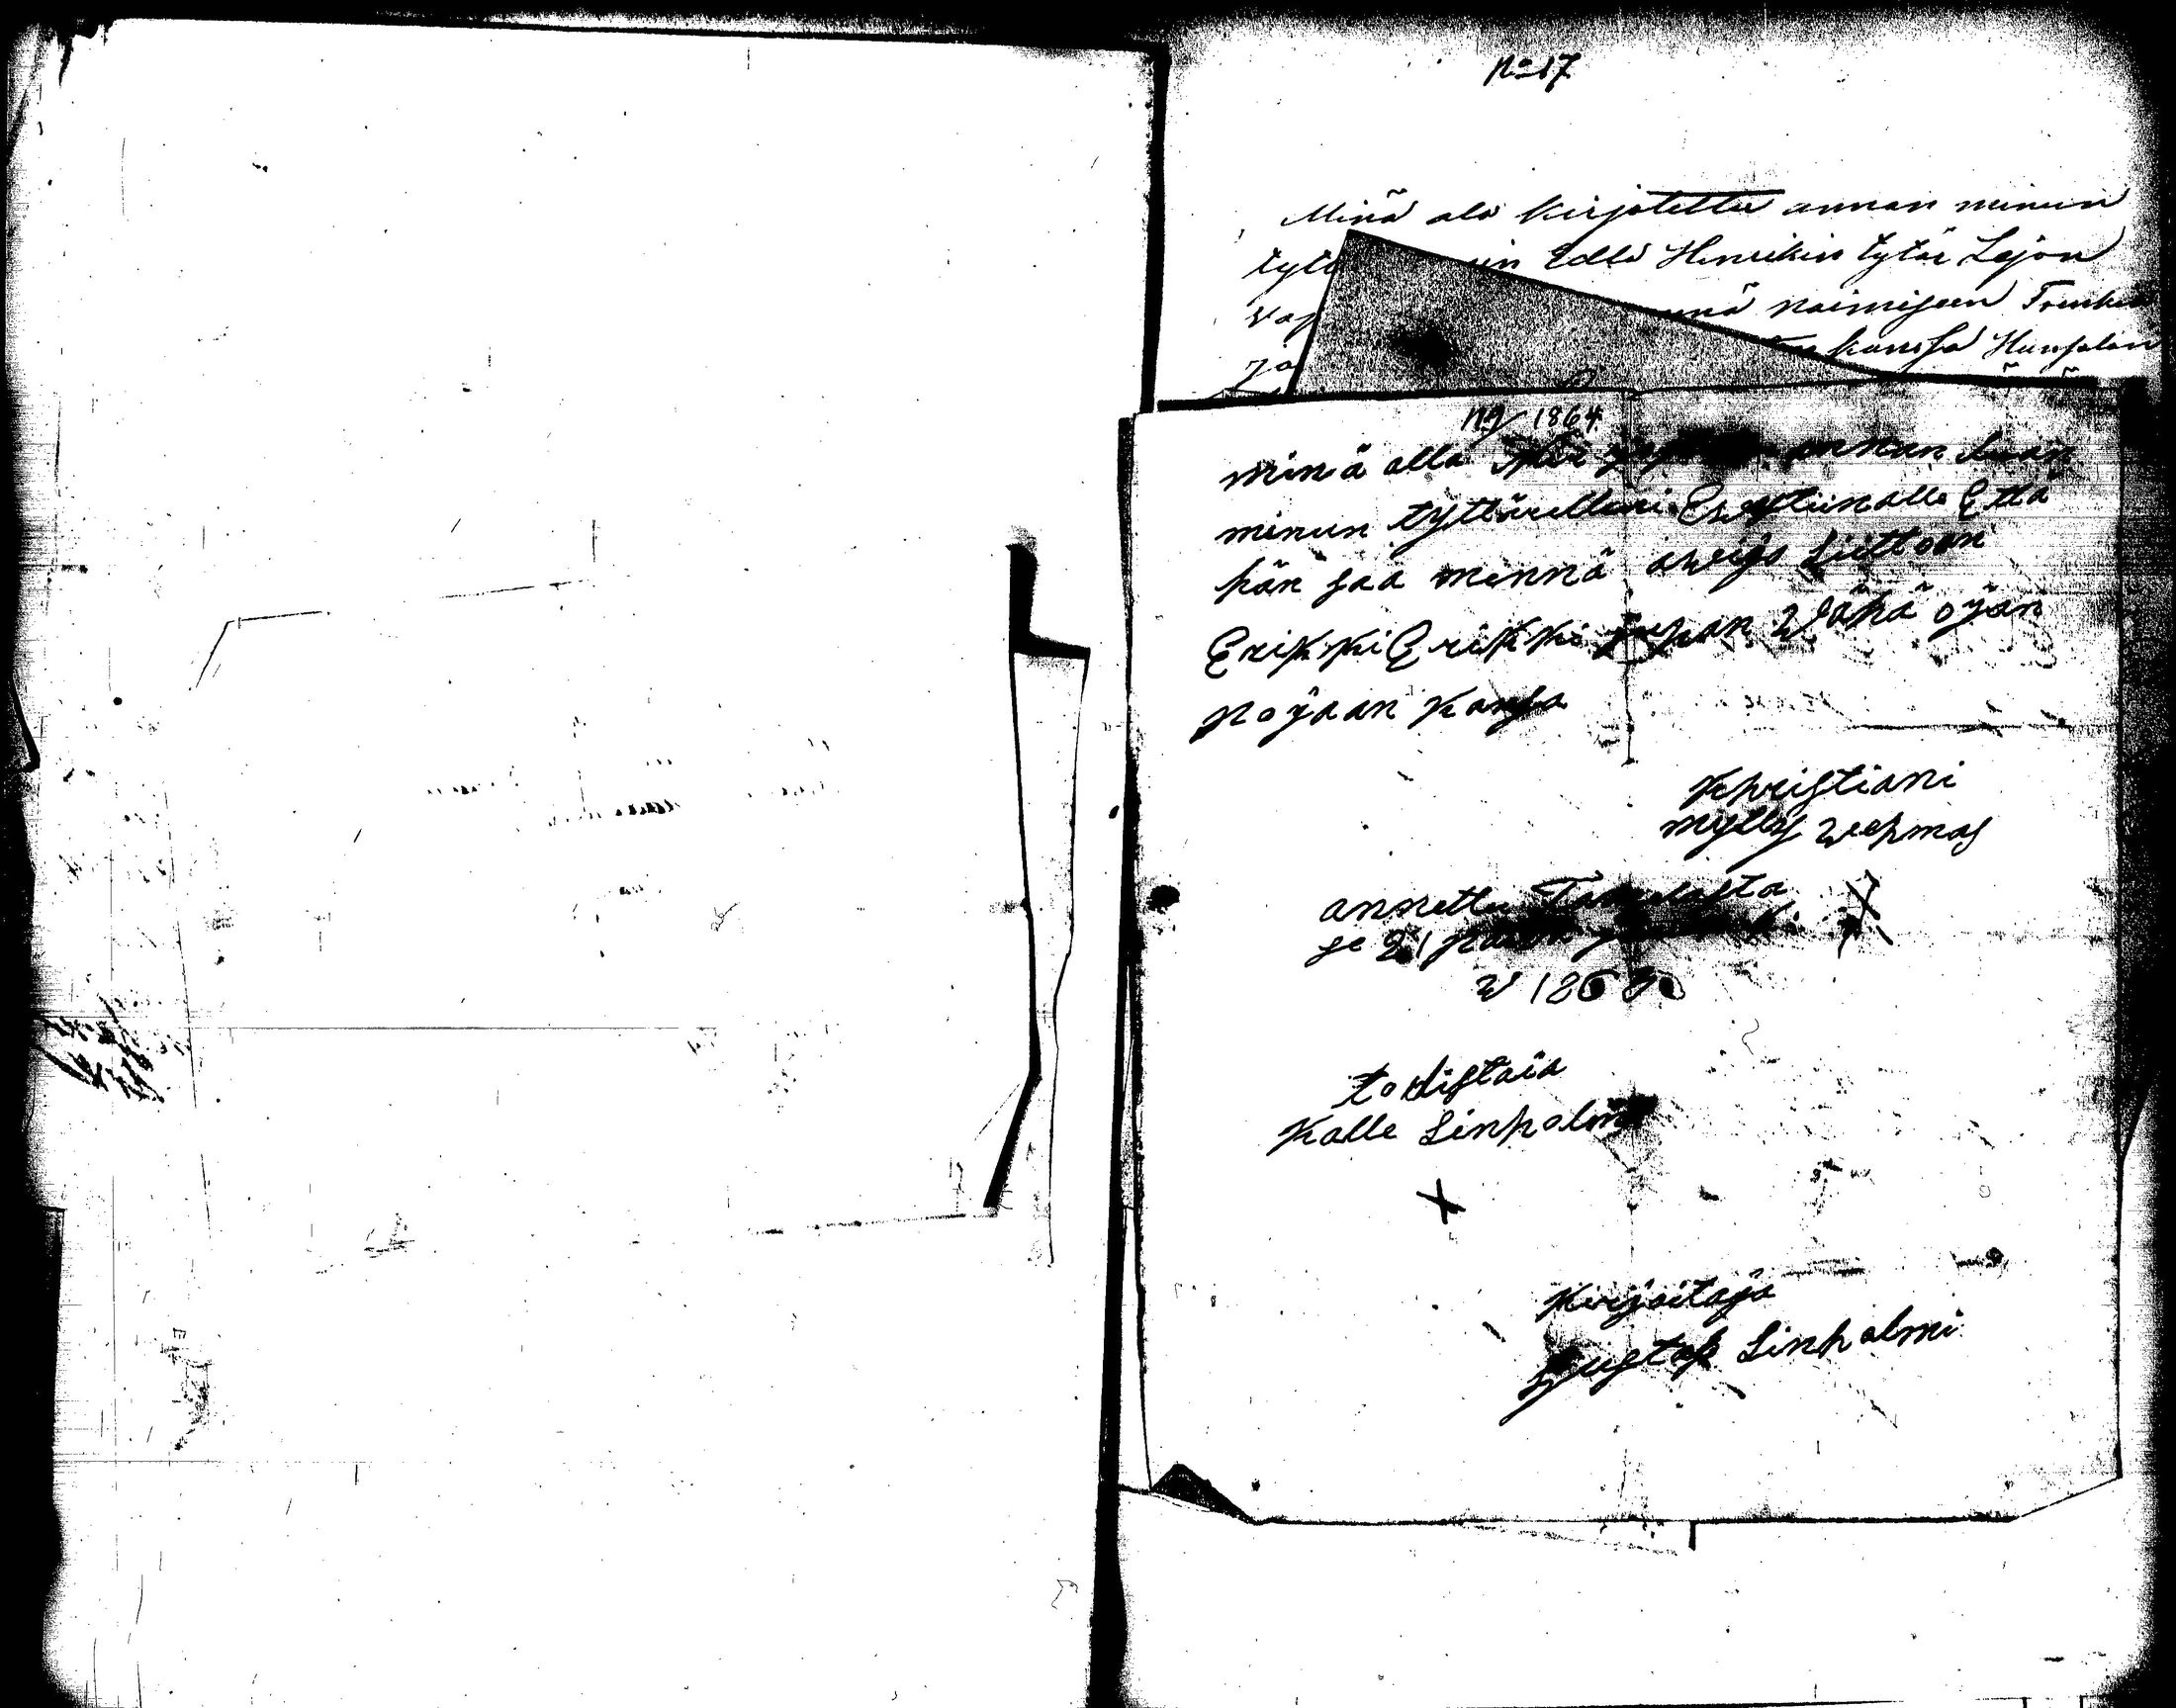 No 17
Minä ala kirjotettu annan minun
tytä in Edla Henrikin tytär Lejon
vap nnä naimiseen Trenken
ja kanssa Hunsalan
No 9 1864
minä alla annan luan
minun tyttärelleni Eweliinalle Että
hän saa mennä awijo Liittoon
Erikki Erikki juhan Wähä ojan
Pojaan Kansa
Khristiani
mylly Wehmas
annettu
se 21
w 186
todistaia
Kalle Linholm
X
Kirjoitaja
Gustaf Linholmi